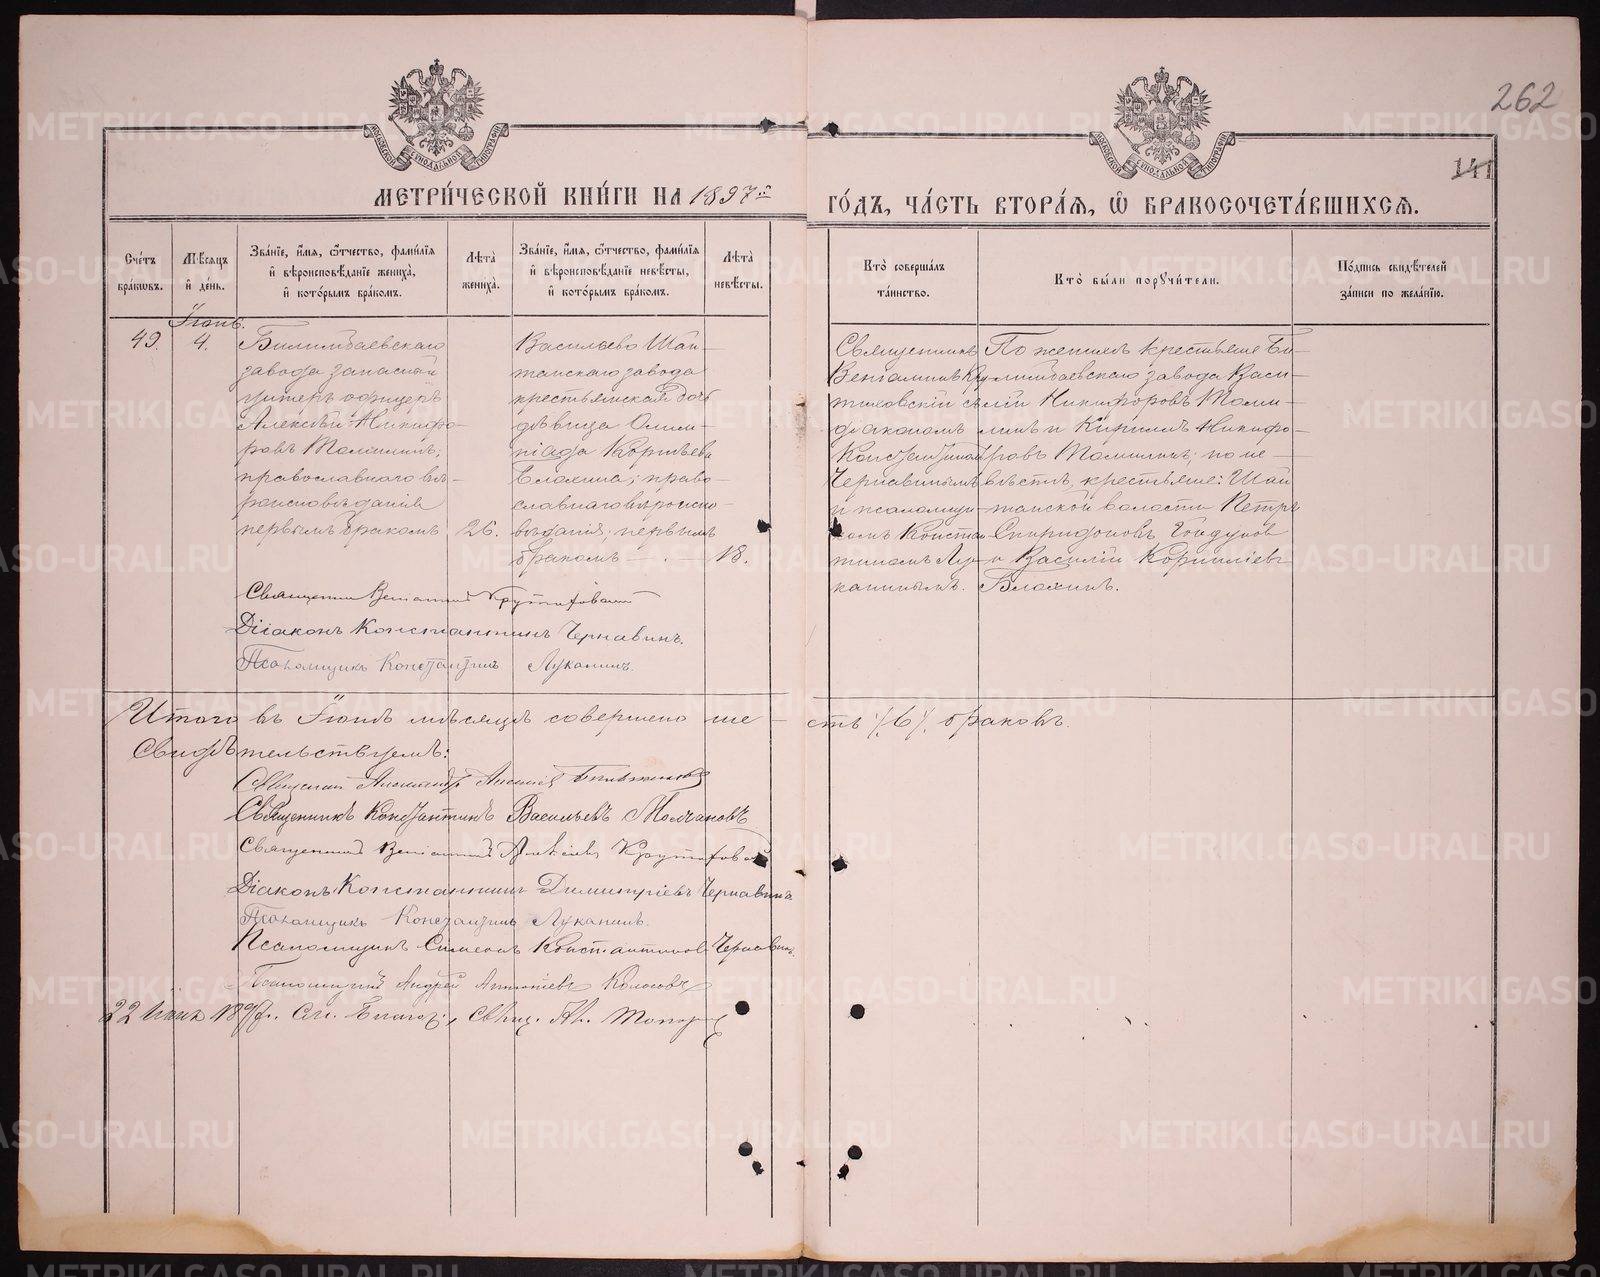 262
141
МОСКОВСКОЙ СѴНОДАЛЬНОЙ ТИПОГРАФІИ
МОСКОВСКОЙ СѴНОДАЛЬНОЙ ТИПОГРАФІИ
МЕТРИ́ЧЕСКОЙ КНИ́ГИ НА 1897й ГО́ДЪ, ЧА́СТЬ ВТОРА́Ѧ, Ѽ БРАКОСОЧЕТА́ВШИХСѦ.
Сче́тъ бра́кѡвъ.
Мѣ́сѧцъ и҆ де́нь.
Зва́нїе, и҆́мѧ, ѻ҆́тчество, фами́лїѧ и҆ вѣроисповѣ́данїе жениха̀, и҆ кото́рымъ бра́комъ.
Лѣ́та жениха̀.
Зва́нїе, и҆́мѧ, ѻ҆́тчество, фами́лїѧ и҆ вѣроисповѣ́данїе невѣ́сты, и҆ кото́рымъ бра́комъ.
Лѣ́та невѣ́сты.
Кто̀ соверша́лъ та́инство.
Кто̀ бы́ли порꙋчи́тели.
По́дпись свидѣ́телей за́писи по жела́нїю.
Іюнь.
49.
4.
Билимбаевскаго
завода запасный
унтеръ офицеръ
Алексѣй Никифо-
ровъ Томилинъ;
православнаго вѣ-
роисповѣданія
первымъ бракомъ.
26.
Васильево Шай-
танскаго завода
крестьянская дочь
дѣвица Олим-
піада Корнильева
Блохина; право-
славнаго вѣроиспо-
вѣданія; первымъ
бракомъ
18.
Священникъ
Веніаминъ Кру-
тиховскій съ
діакономъ
Константиномъ
Чернавинымъ
и псаломщи-
комъ Констан-
тиномъ Лу-
канинымъ.
По женихѣ крестьяне Би-
лимбаевскаго завода Васи-
лій Никифоровъ Томи-
линъ и Кириллъ Никифо-
ровъ Томилинъ; по не-
вѣстѣ, крестьяне: Шай
танской волости Петръ
Спиридоновъ
и Василій Корниліевъ
Блохинъ.
Священникъ Веніаминъ Крутиховскій
Діаконъ Константинъ Чернавинъ.
Псаломщикъ Константинъ Луканинъ.
Итого въ Іюнѣ мѣсяцѣ совершено ше-сть /6/ браковъ.
Свидѣтельствуемъ:
Священникъ Александръ
Священникъ Константинъ Васильевъ Молчановъ
Священникъ Веніаминъ Алексѣевъ Крутиховскій
Діаконъ Константинъ Димитріевъ Чернавинъ
Псаломщикъ Константинъ Луканинъ.
Псаломщикъ Симеонъ Константиновъ Чернавинъ.
Псаломщикъ Андрей Антоніевъ Колосовъ
22 1897 г. Благоч., Свящ.
METRIKI.GASO-URAL.RU